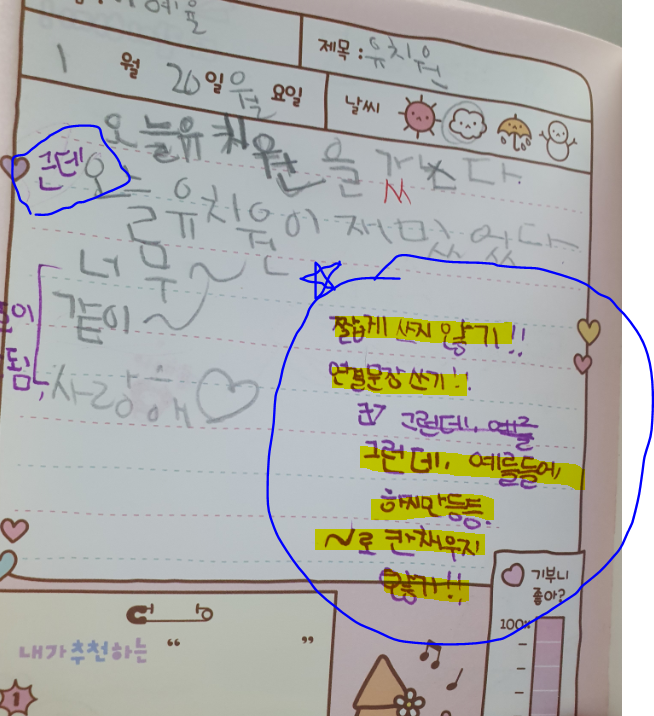 예을
제목 : 유치원
1 월 20 일 월 요일
날씨
오늘 유치원을 갔다.
근데 오늘
유치원이 재미있었다
너무~
같이~
사랑해♡
됨,
짧게 쓰지 않기!!
연결문장 쓰기!!
그런데, 예를
그런데, 예를들어,
하지만 등등.
~로 칸 채우지
않기!!
기부니
좋아?
100%
내가 추천하는 “ ”
1